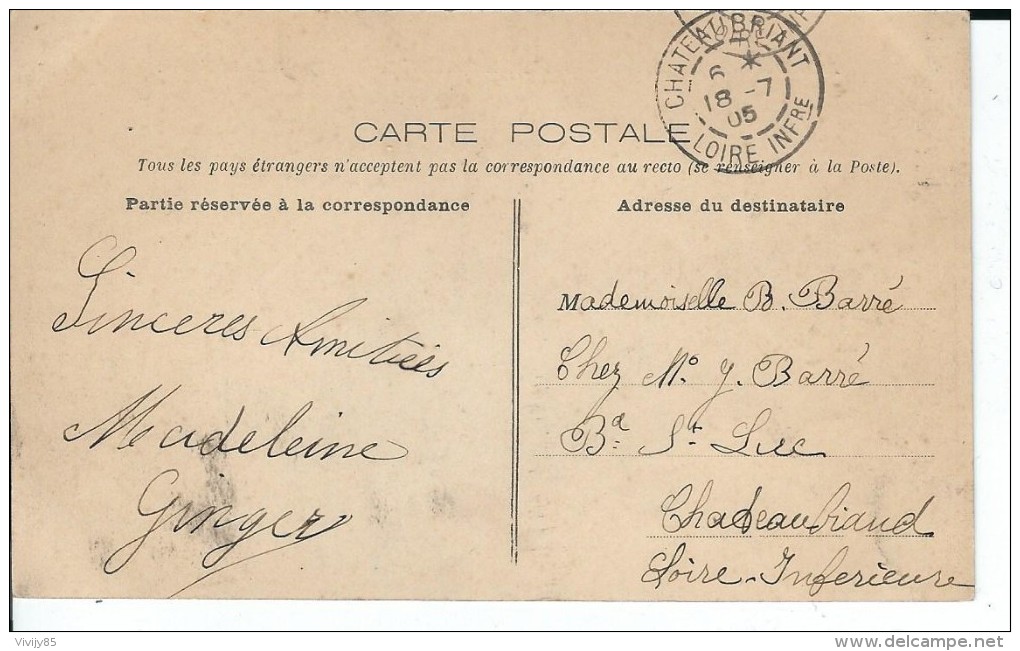 CHATEAUBRIANT
6
18 -7
05
LOIRE INFRE
CARTE POSTALE
Tous les pays étrangers n'acceptent pas la correspondance au recto (se renseigner à la Poste).
Partie réservée à la correspondance
Sinceres Amitiées
Madeleine
Ginger
Adresse du destinataire
Mademoiselle B. Barré
Chez Mº J. Barré
Bd St Luc
Chateaubriand
Loire-Inferieure
Vivijy85
www.delcampe.net